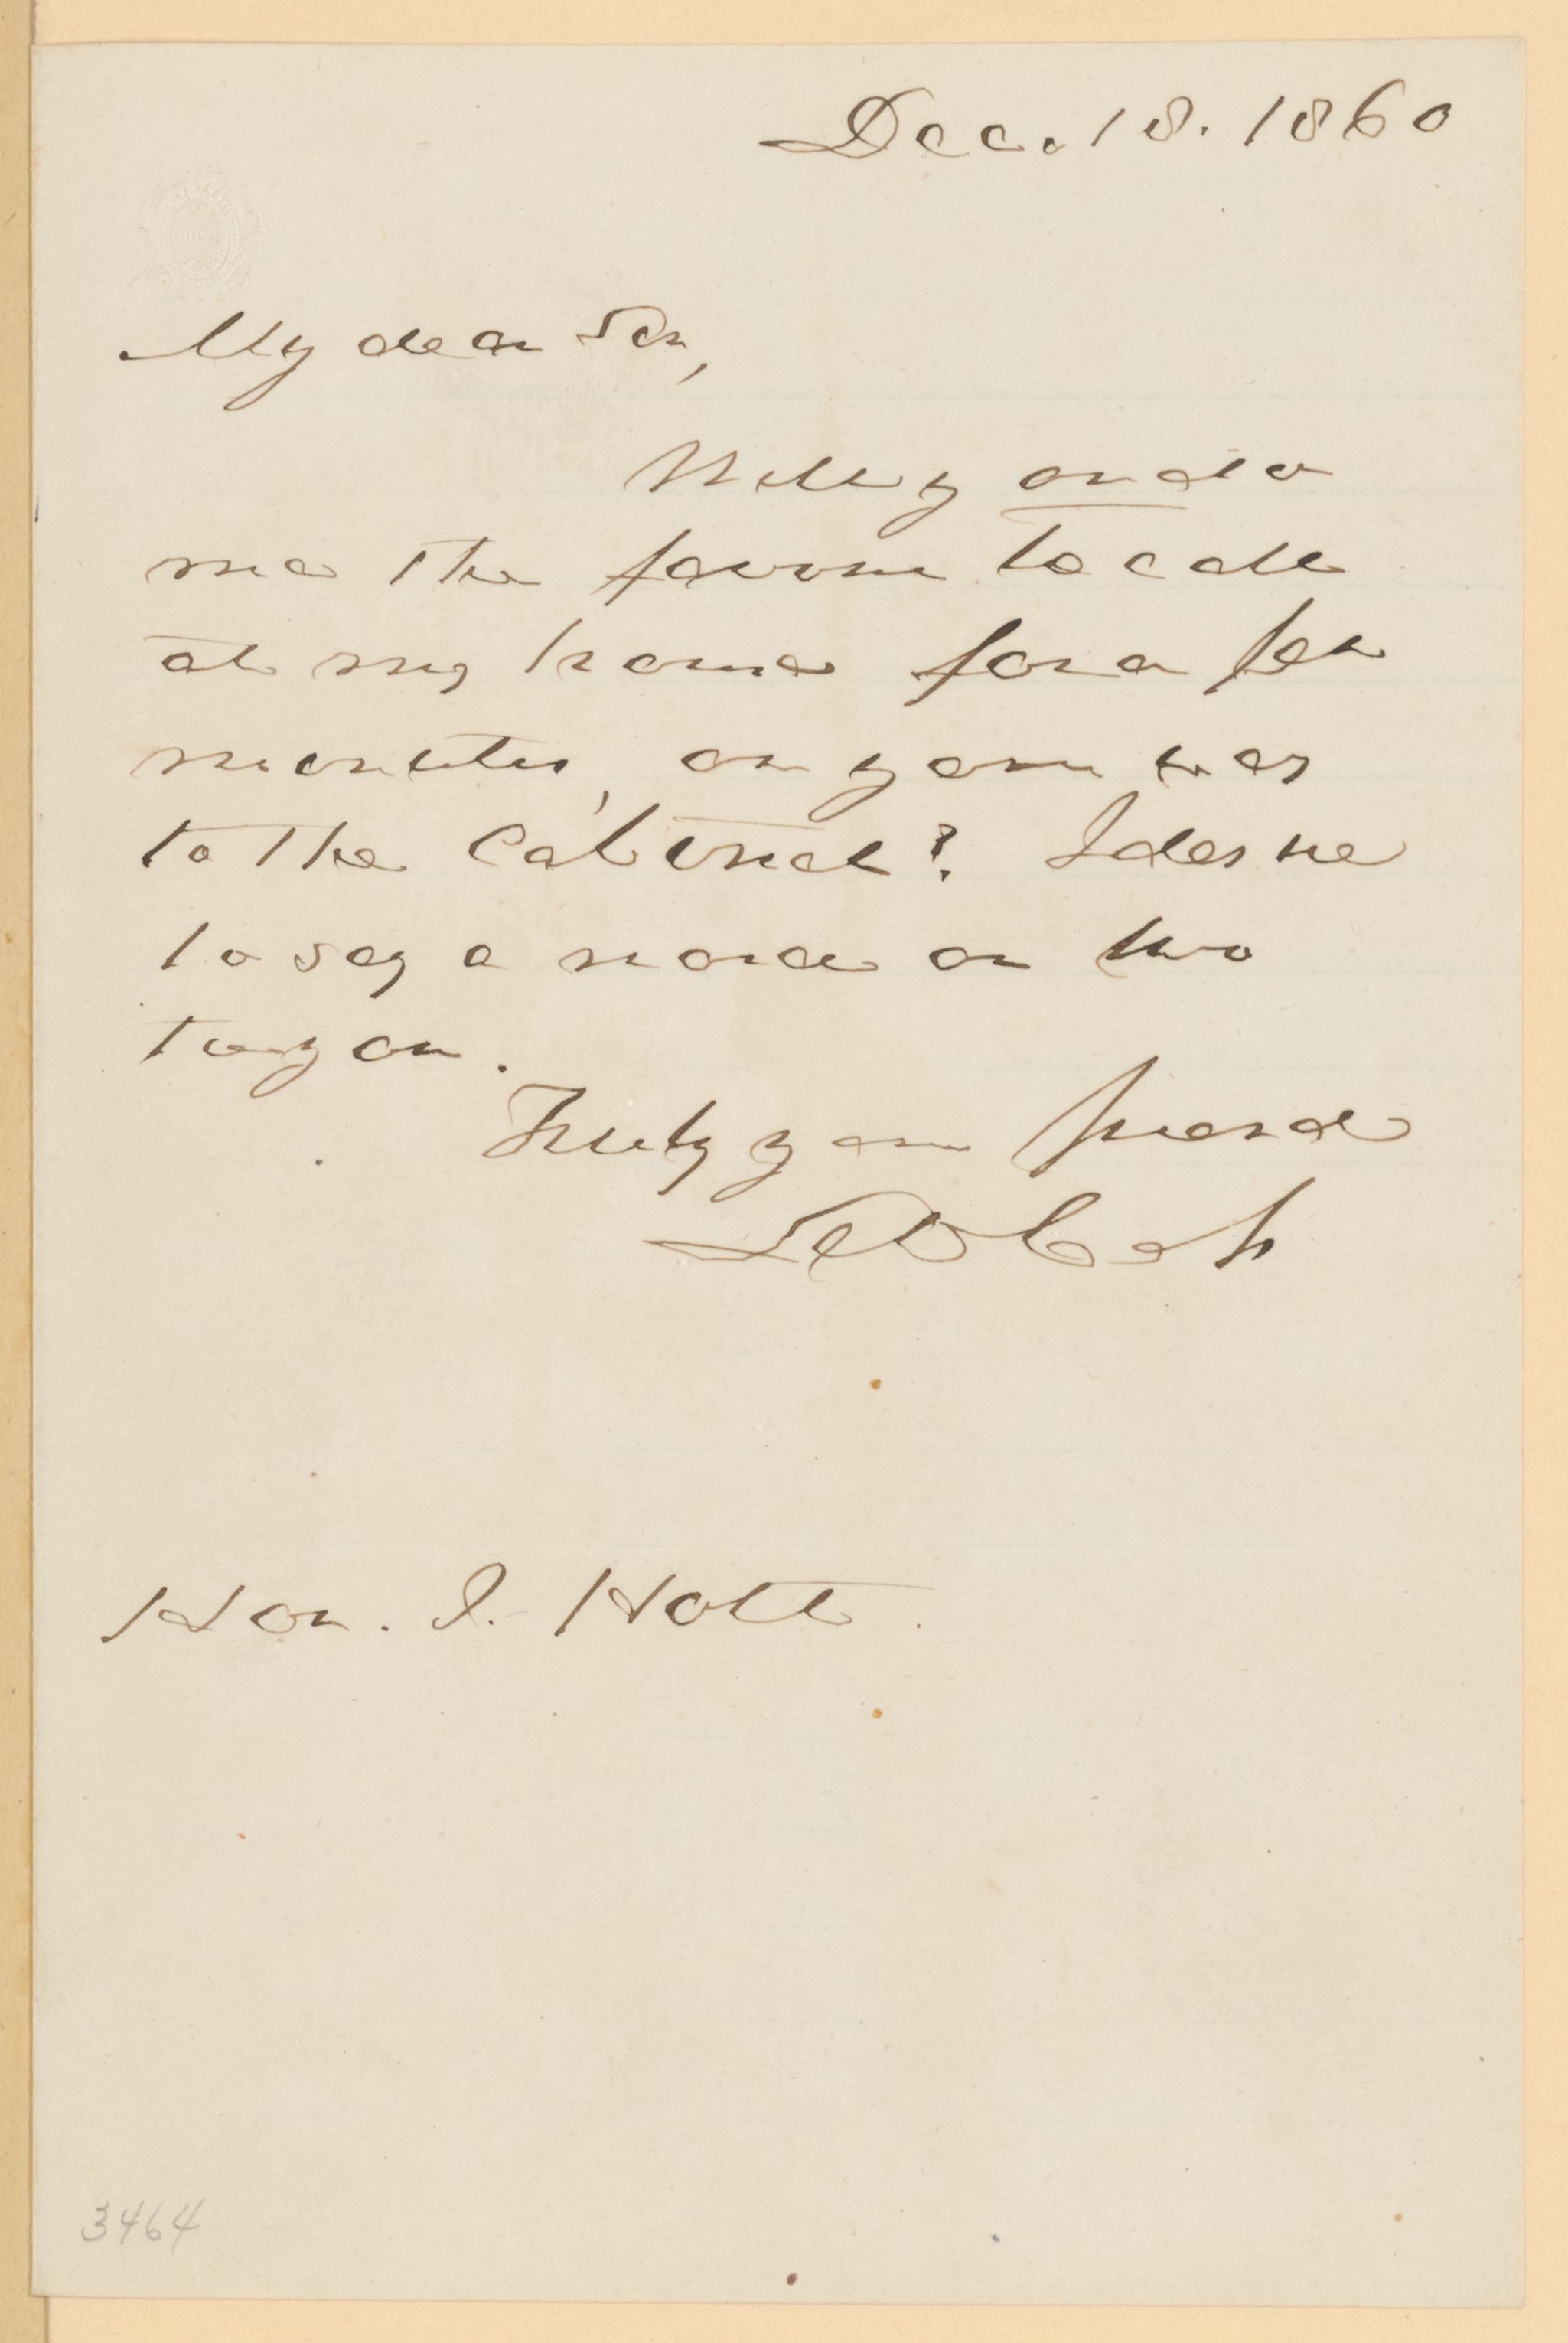 Dec. 18. 1860
My dear Sir,
Will you do
me the favour to call
at my house for a few
minutes, on your way
to the Cabinet? I desire
to say a word or two
to you.
Truly your friend
Lew Cass
Hon. J. Holt
3464